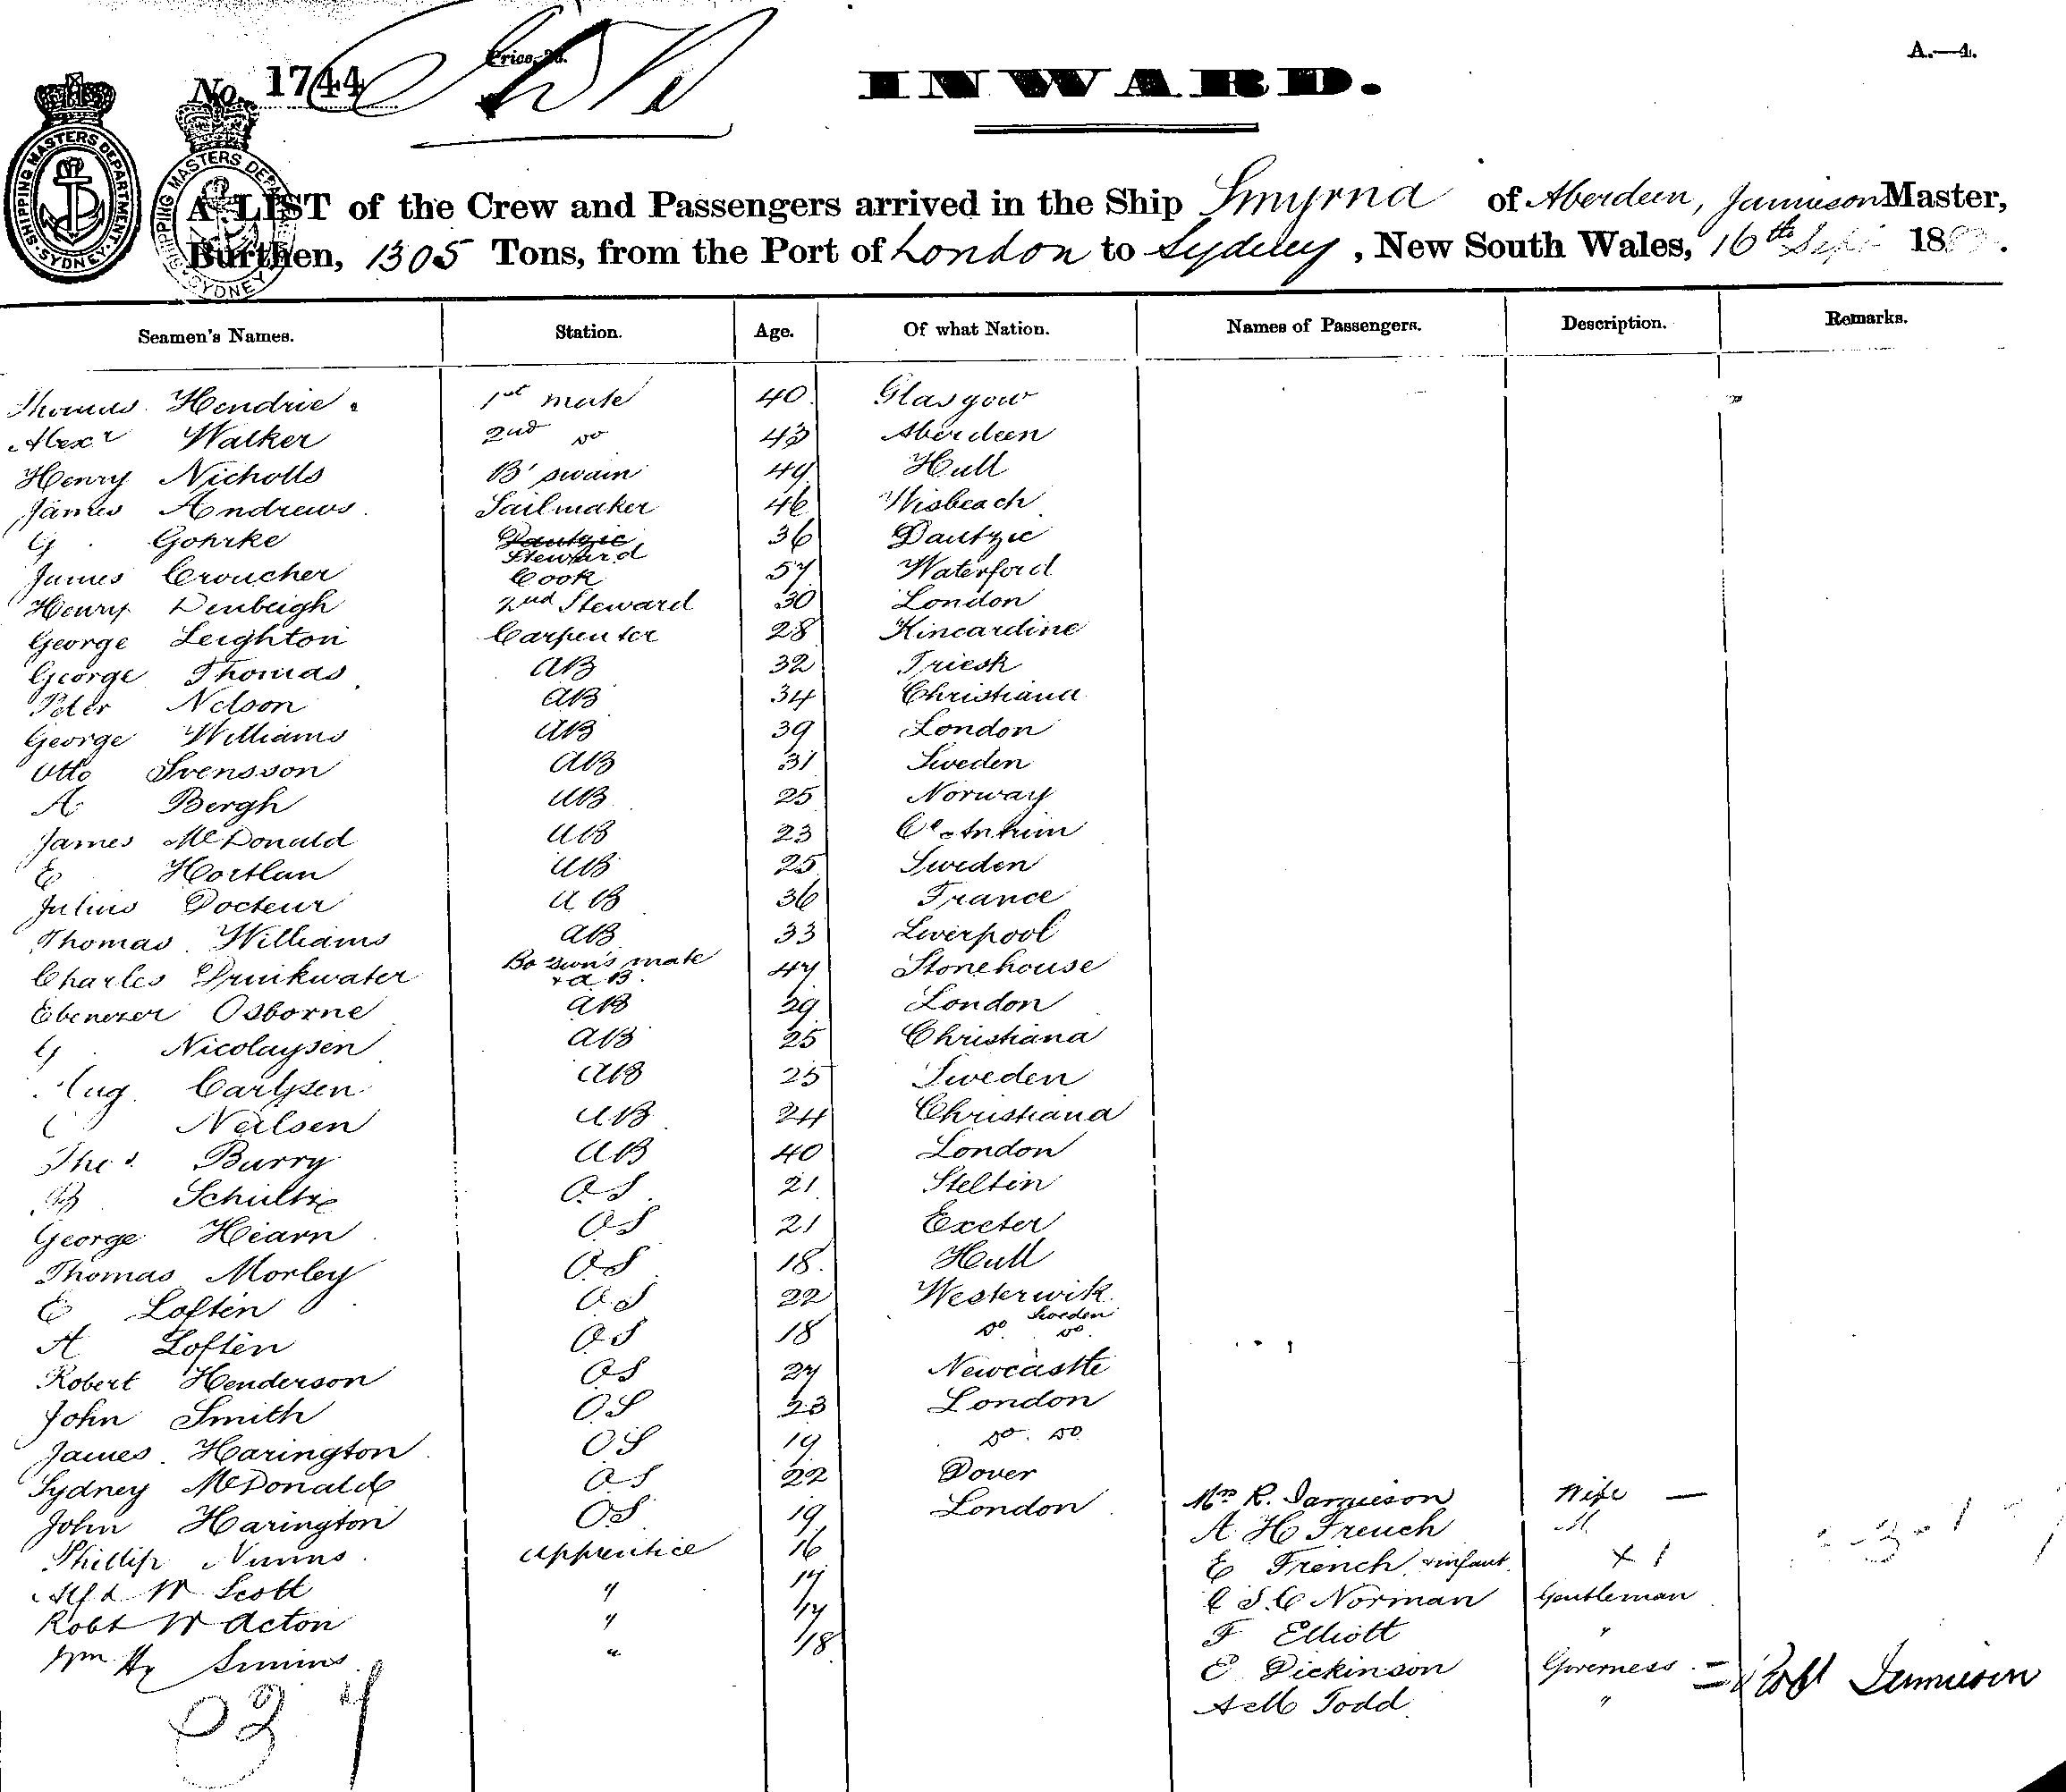 A.—4.
Price, 2d.
No. 1744
INWARD.
SHIPPING MASTERS DEPARTMENT. SYDNEY
SHIPPING MASTERS DEPARTMENT SYDNEY
A LIST of the Crew and Passengers arrived in the Ship Smyrna of Aberdeen, Jamieson Master,
Burthen, 1305 Tons, from the Port of London to Sydney, New South Wales, 16th Sept 18
Seamen's Names. Station. Age. Of what Nation. Names of Passengers. Description. Remarks.
Thomas Hendrie 1st mate 40 Glasgow
Alexr Walker 2nd Do 43 Aberdeen
Henry Nicholls B'swain 49 Hull
James Andrews Sailmaker 46 Wisbeach
G Gohrke Dantzic Steward 36 Dantzic
James Croucher Cook 57 Waterford
Henry Denbeigh 2nd Steward 30 London
George Leighton Carpenter 28 Kincardine
George Thomas AB 32
Peter Nelson AB 34 Christiana
George Williams AB 39 London
Otto Svensson AB 31 Sweden
A Bergh AB 25 Norway
James McDonald AB 23 Co Antrim
E Hortlan AB 25 Sweden
Julius Docteur AB 36 France
Thomas Williams AB 33 Liverpool
Charles Drinkwater Bo swn's mate + AB 47 Stonehouse
Ebenezer Osborne AB 29 London
G Nicolaysen AB 25 Christiana
Aug. Carlsen AB 25 Sweden
Neilsen AB 24 Christiana
Thos Burry AB 40 London
Schultze OS 21 Stettin
George Hearn OS 21 Exeter
Thomas Morley OS 18 Hull
E Loften OS 22 Westerwik Sweden
A Loften OS 18 Do Do
Robert Henderson OS 27 Newcastle
John Smith OS 23 London
James Harington OS 19 Do Do
Sydney McDonald OS 22 Dover Mrs R. Jamieson Wife —
John Harington OS 19 London A H French
Phillip Nunns Apprentice 16 E French + infant + 1
Alfd W Scott " 17 C S C Norman Gentleman
Robt W Acton " 17 F Elliott "
Wm Hy Simms " 18 E Dickinson Governess
A M Todd "
Robt Jamieson